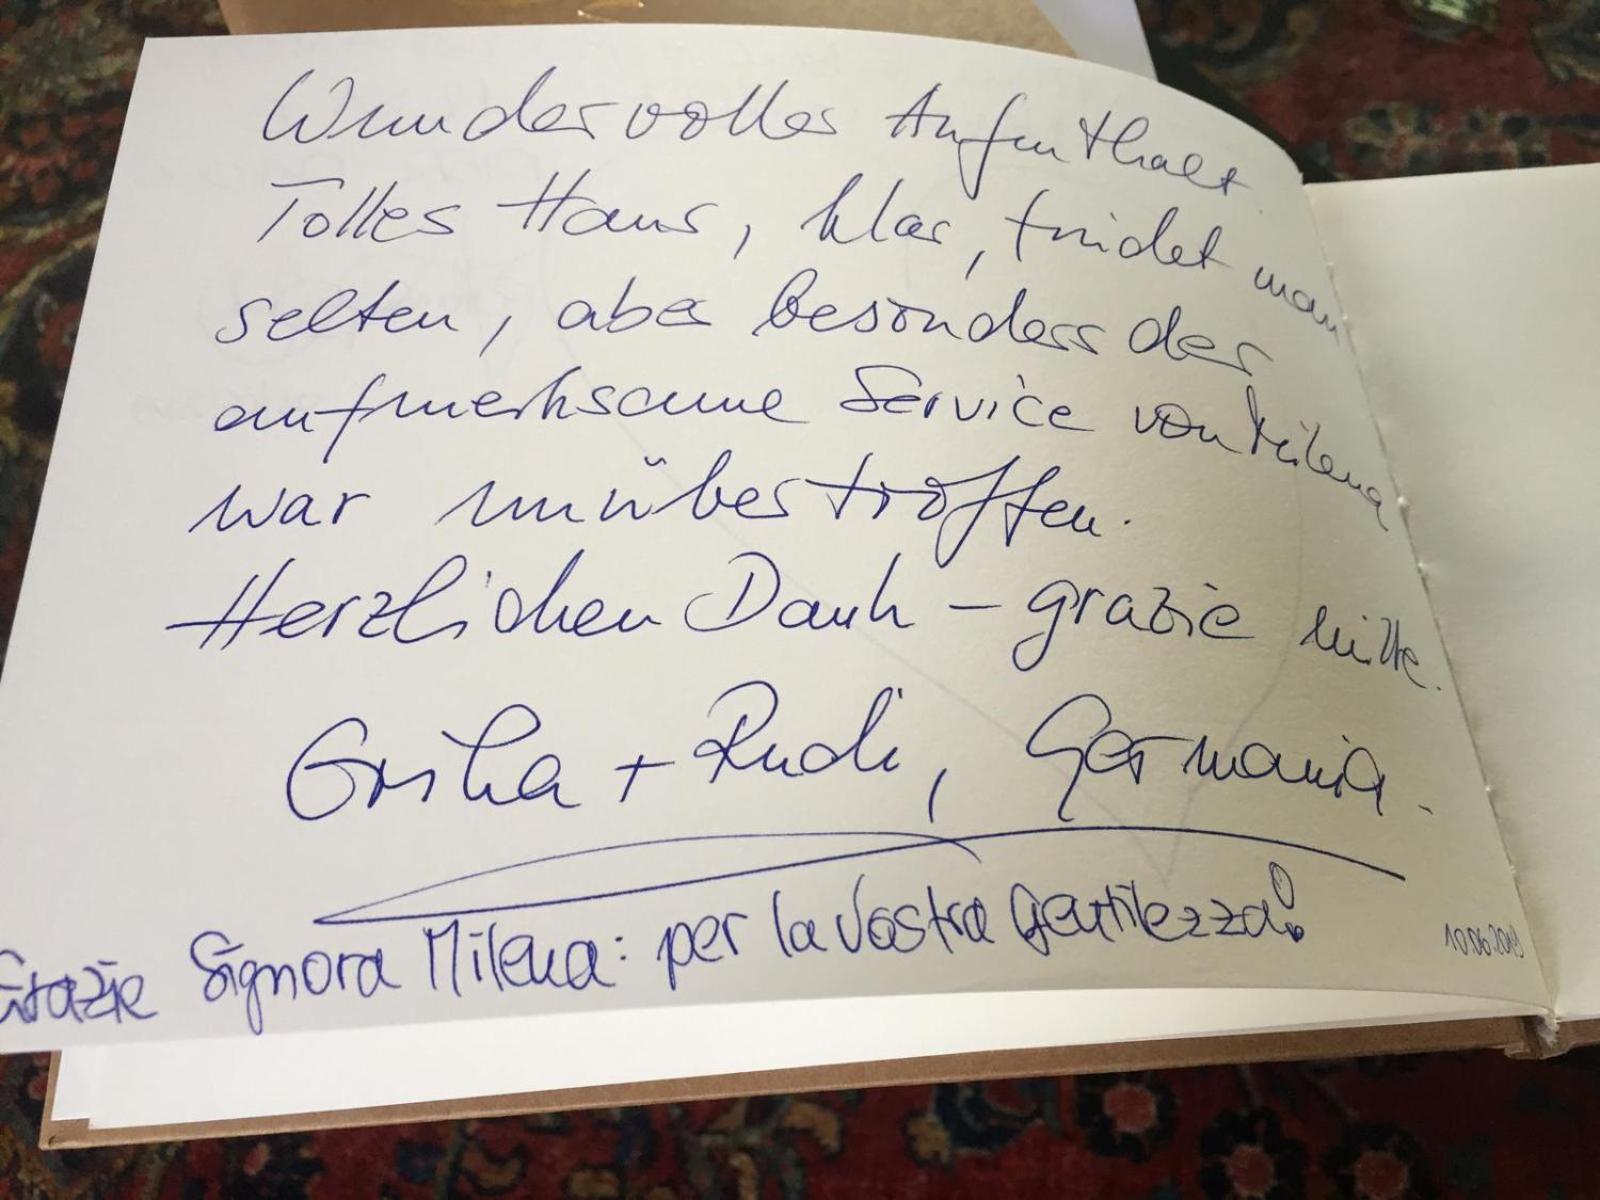 Wundervoller Aufenthalt.
Tolles Haus, klar, findet man
selten, aber besonders der
aufmerksame Service von Milena
war unübertroffen.
Herzlichen Dank – grazie mille.
+ Rudi, Germania.
Grazie Signora Milena: per la Vostra Gentilezza!
10.06.2019